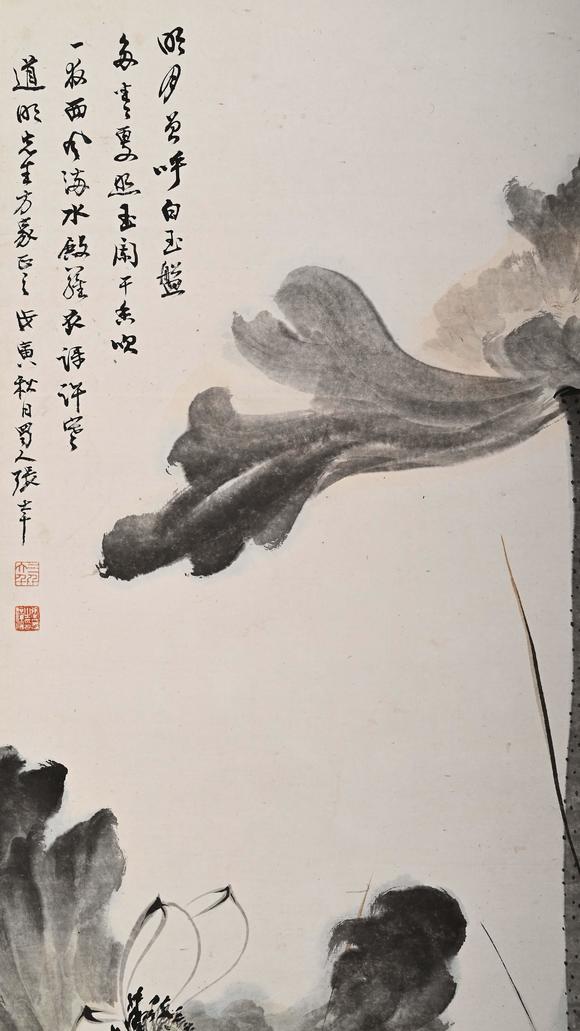 明月曾呼白玉盤
多情更照玉闌干香吹
一夜西風滿水殿羅衣許寒
道明先生方家正之 戊寅秋日蜀人張爰